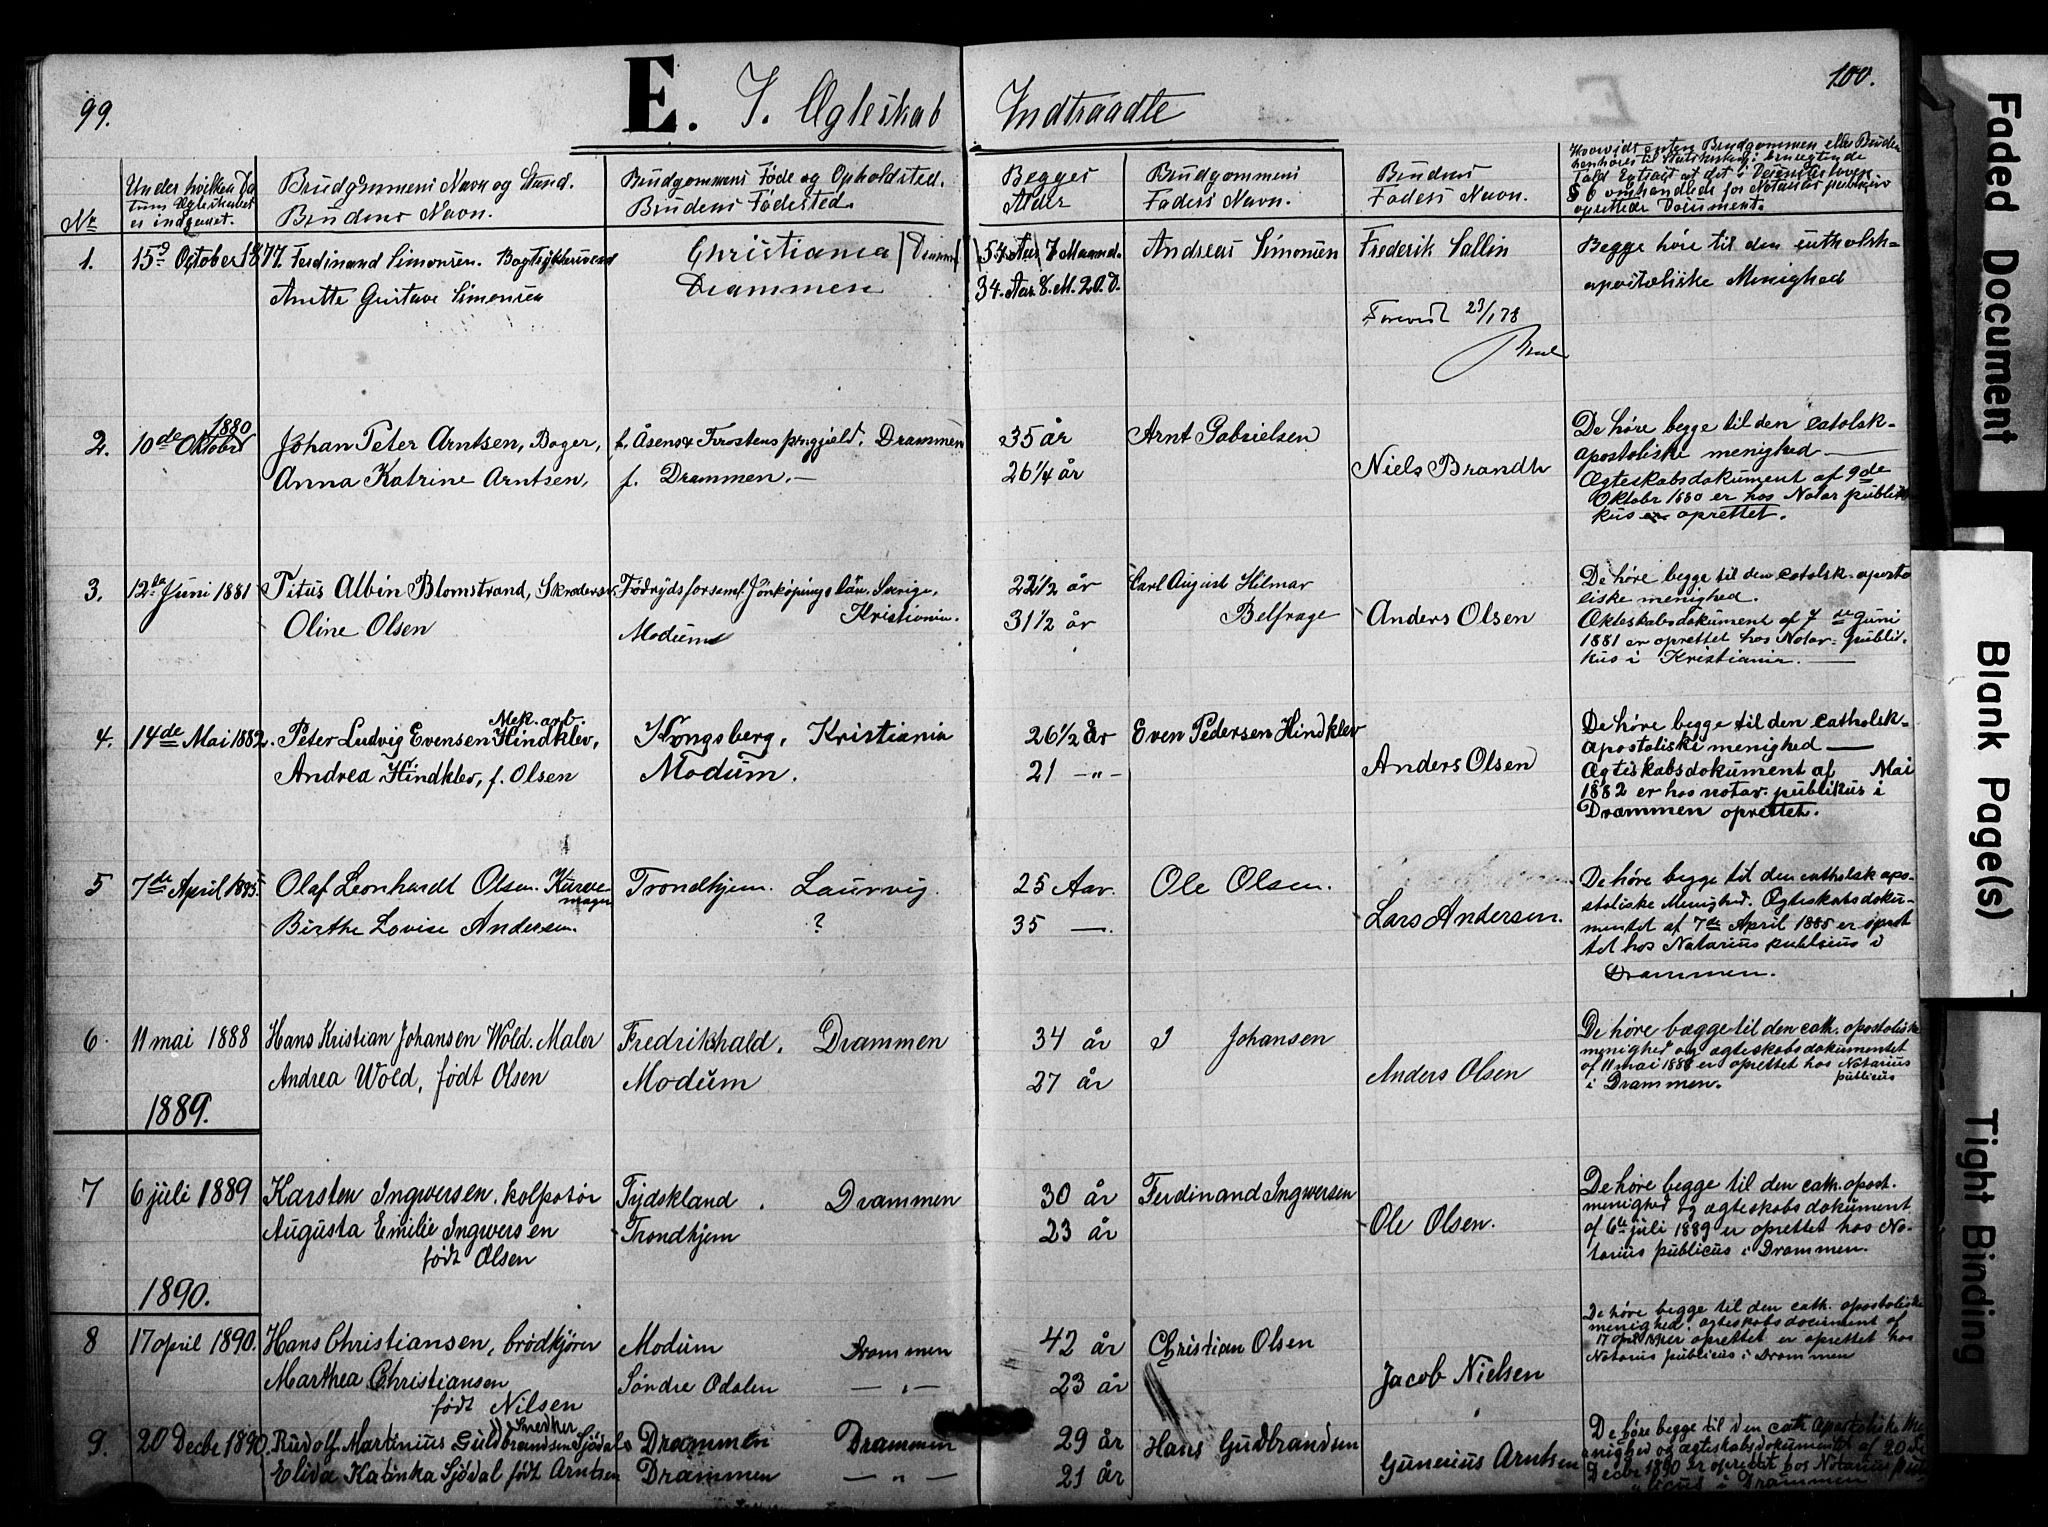 99.
E. I. Ægteskab Indtraadte
100.
Nr
Under hvilken Da-
tum Ægteskabet
er indgaaet.
Brudgommens Navn og Stand.
Brudens Navn.
Brudgommens Føde og Opholdsted.
Brudens Fødested.
Begges
Alder
Brudgommens
Faders Navn.
Brudens
Faders Navn.
Hvorvidt enten Brudgommen eller Bruden
henhører til Statskirken, i bensegtende
Fald Extract af det i Dissenterloven
§ 6 omhandlede for Notarius publicus
oprettede Document.
1. 15de October 1877. Ferdinand Simonsen. Bogtrykkersvend Christiania Drammen 54 Aar 7 Maaned. Andreas Simonsen Frederik Sallin Begge høre til den catholsk-
Anette Gustave Simonsen Drammen 34. Aar. 8. M. 20. D. apostoliske Menighed
Forevist 23/1 78
1880
2. 10de Oktober Johan Peter Arntsen, Bager, f. Åsen Frostens prgjeld. Drammen 35 år Arnt Gabrielsen De høre begge til den catolsk-
Anna Katrine Arntsen, f. Drammen. — 26 1/4 år Niels Brandt apostoliske menighed —
Ægteskabsdokument af 9de
Oktobr 1880 er hos Notar publi
kus oprettet.
3. 12te Juni 1881 Titus Albin Blomstrand, Skrædersv. Fødrydsforsaml. Jönköpings län, Sverige, 22 1/2 år Carl August Hilmar De høre begge til den catolsk-aposto
Kristiania. Belfrage liske menighed.
Oline Olsen Modum 31 1/2 år Anders Olsen Ækteskabsdokument af 7de Juni
1881 er oprettet hos Notar-publi-
kus i Kristiania. —
4. 14de Mai 1882. Peter Ludvig Evensen Hindklev, Mek. arb. Kongsberg, Kristiania 26 1/2 år Even Pedersen Hindklev De høre begge til den catholsk-
Andrea Hindklev, f. Olsen Modum. 21 -"- Anders Olsen apostoliske menighed —
Ægteskabsdokument af Mai
1882 er hos notar publikus i
Drammen oprettet.
5 7de April 1885. Olaf Leonhardt Olsen. Kurve-
mager Trondhjem. Laurvig. 25 Aar. Ole Olsen. De høre begge til den catholsk apo-
Birthe Lovise Andersen. ? 35 —. Lars Andersen. stoliske Menighed. Ægteskabsdoku-
mentet af 7de April 1885 er opret
tet hos Notarius publicus i
Drammen.
6. 11 mai 1888 Hans Kristian Johansen Wold. Maler Fredrikshald. Drammen 34 år J Johansen De høre begge til den cath. apostoliske
Andrea Wold, født Olsen Modum 27 år Anders Olsen menighed og ægteskabsdokumentet
af 11 mai 1888 er oprettet hos Notarius
publicus
i Drammen.
1889.
7 6 juli 1889 Karsten Ingwersen. kolportør Tydskland. Drammen 30 år Ferdinand Ingwersen De høre begge til den cath. apost.
Augusta Emilie Ingwersen Trondhjem 23 år Ole Olsen. menighed og ægteskabsdokument
født Olsen af 6te juli 1889 er oprettet hos No-
tarius publicus i Drammen.
1890.
8 17 april 1890. Hans Christiansen, brødkjører Modum Drammen 42 år Christian Olsen De høre begge til den cath. apostoliske
Marthea Christiansen Søndre Odalen — " — 23 år Jacob Nielsen menighed. ægteskabsdocument af
født Nilsen 17 april er oprettet er oprettet hos
Notarius publicus i Drammen
9. 20 Decbr 1890. Rudolf Martinius Guldbrandsen Sjødal Snedker Drammen Drammen 29 år Hans Gudbrandsen De høre begge til den cath. apostoliske me
Elida Katinka Sjødal født Arntsen Drammen — " — 21 år Gunerius Arntsen nighed og ægteskabsdokumentet af 20de
Decbr 1890 er oprettet hos Notarius pub
licus i Drammen
Faded Document
Blank Page(s)
Tight Binding